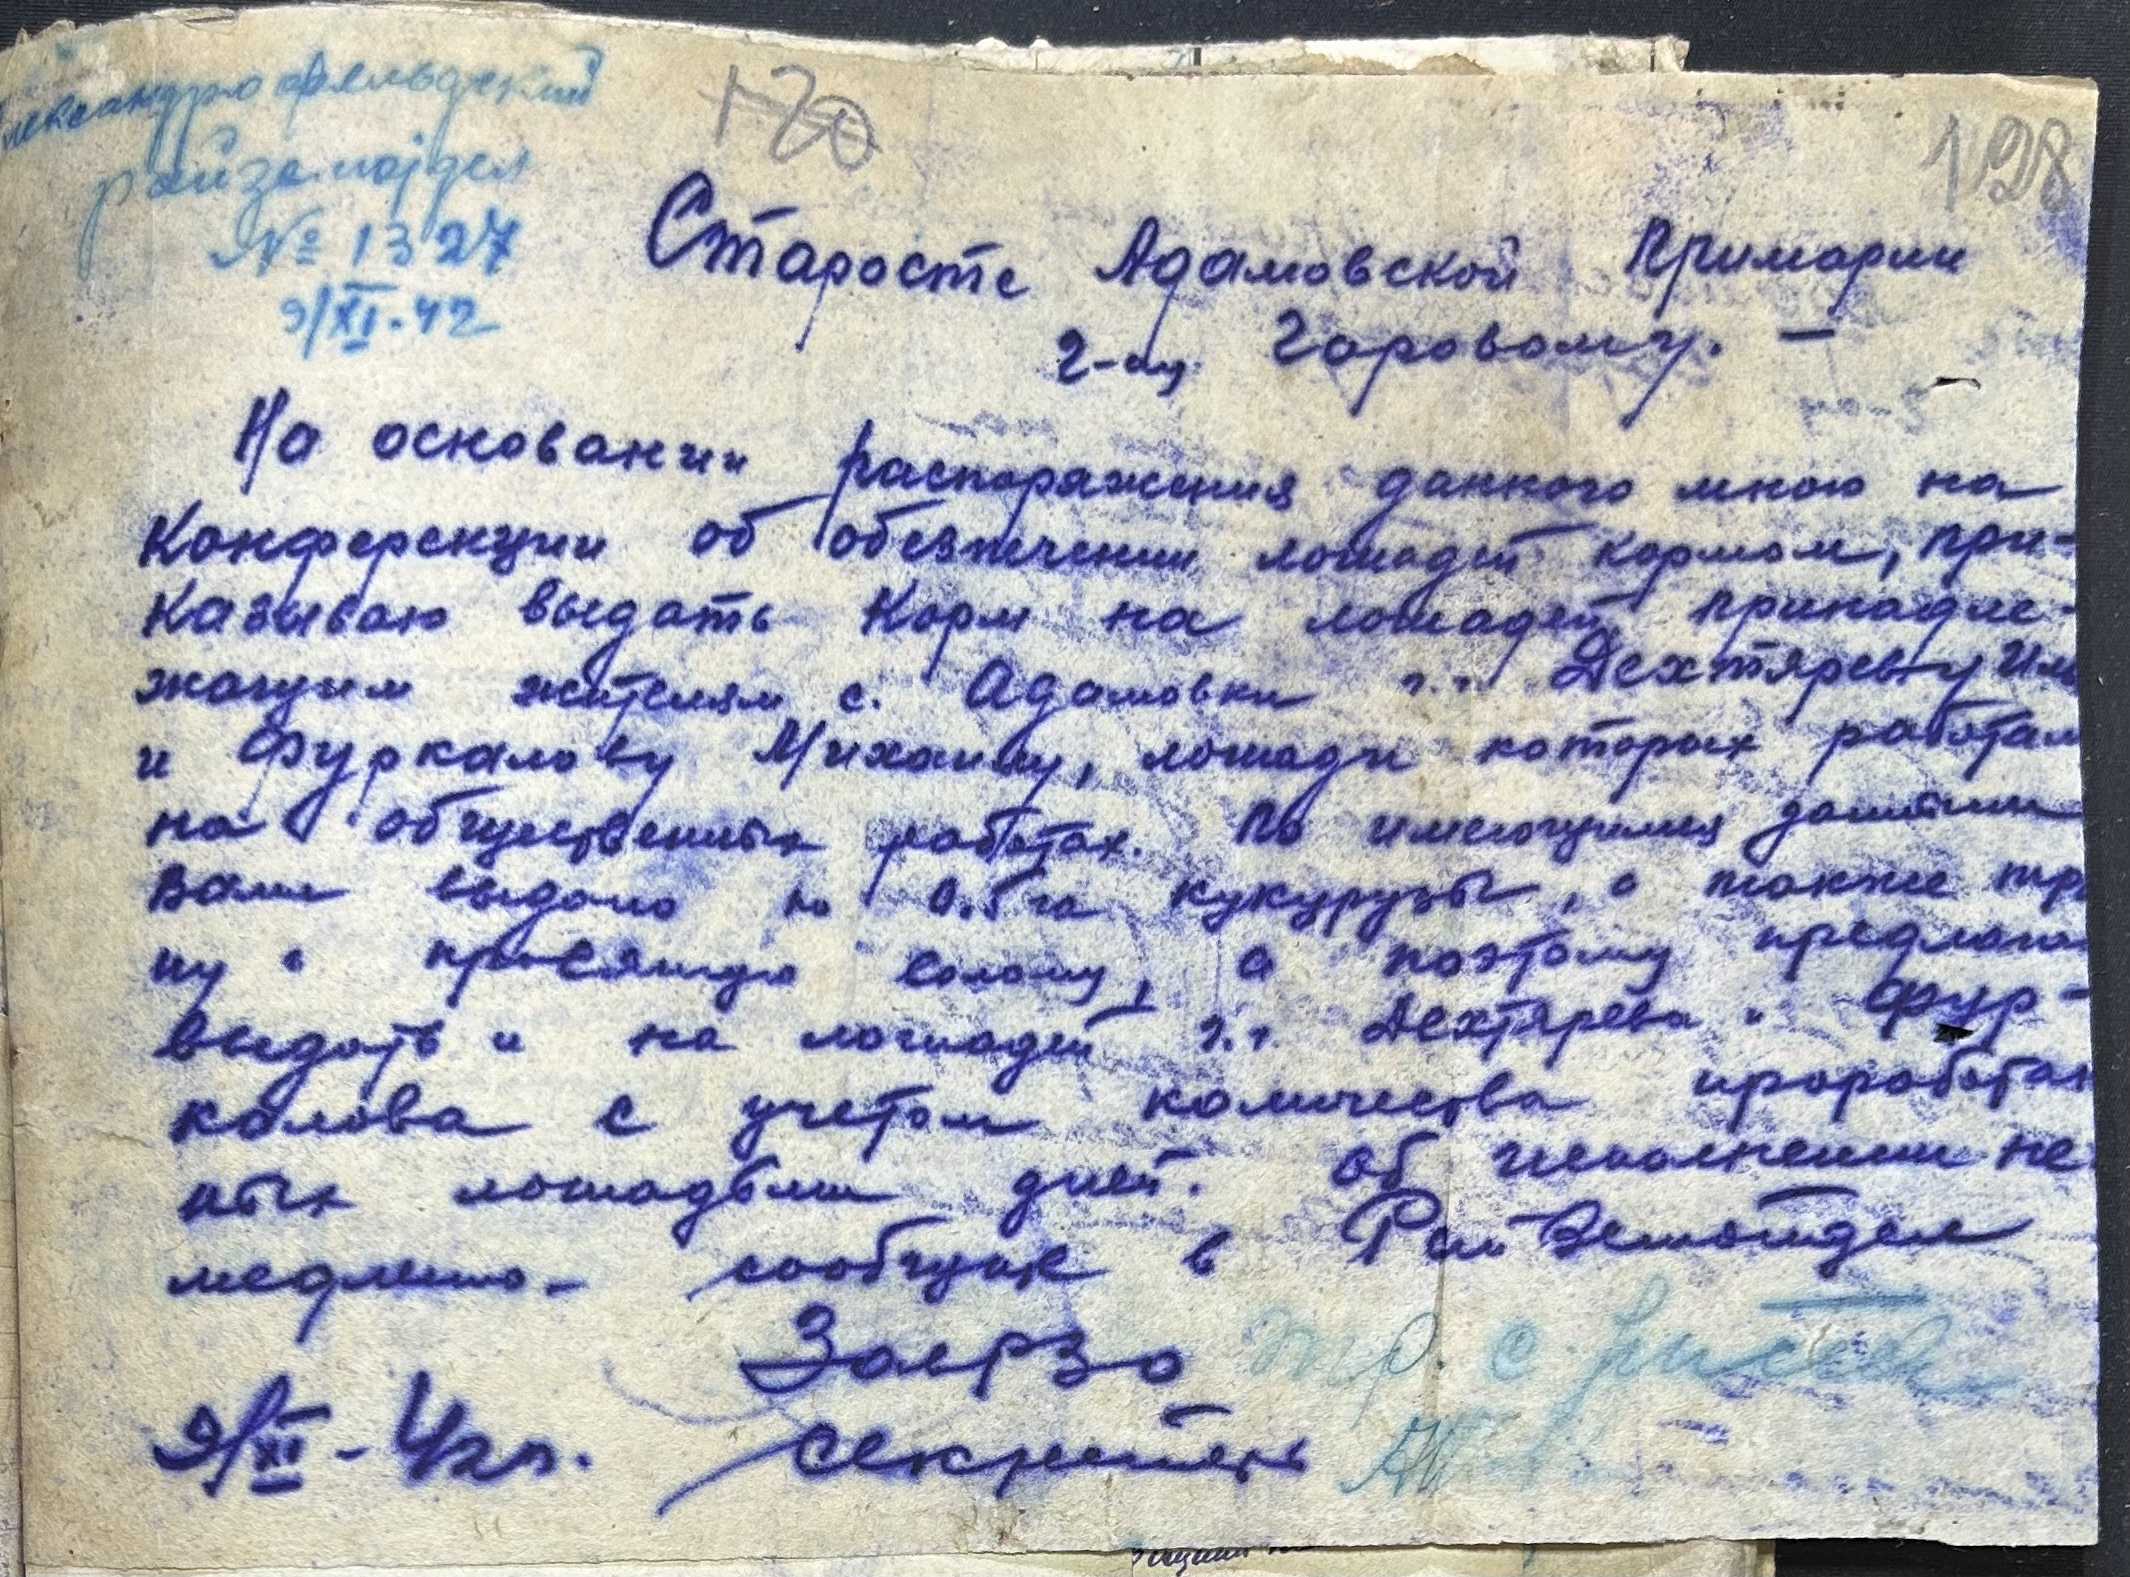 Александрофельдский
райземотдел
№ 1327
9/XI.42
120
128
Старосте Адамовской Примарии
г-ну Горовому. —
На основании распоряжения данного мною на
Конференции об обезпечении лошадей кормом, при-
казываю выдать Корм на лошадей принадле-
жащим жителям с. Адамовки г.г. Дехтяреву
и Фуркалову Михаилу, лошади которых работали
на общественных работах. По имеющимся данным
Вами выдано по 0.5 га кукурузы, а также
и просяную солому, а поэтому предлагаю
выдать и на лошадей г.г. Дехтярева и Фур-
калова с учетом количества проработан
ных лошадьми дней. Об исполнении не-
медленно сообщите в РайЗемотдел
ЗавРЗО
9/XI-42 г. Секретарь